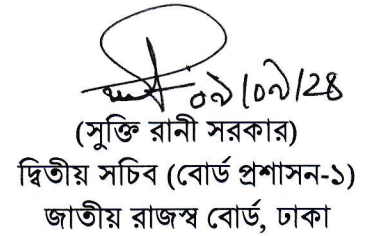 ০৯/০৯/২৪
(সুক্তি রানী সরকার)
দ্বিতীয় সচিব (বোর্ড প্রশাসন-১)
জাতীয় রাজস্ব বোর্ড, ঢাকা